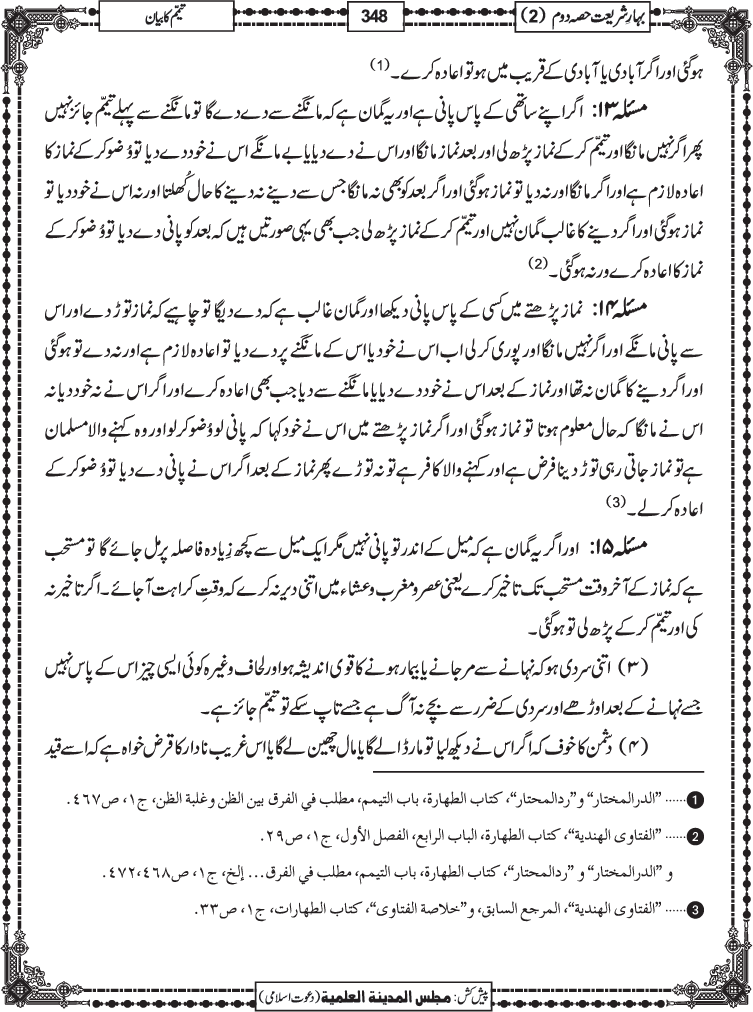 بہارِ شریعت حصہ دوم (2)
348
تیمّم کا بیان
ہوگئی اور اگر آبادی یا آبادی کے قریب میں ہو تو اعادہ کرے۔ (1)
مسئلہ ۱۳: اگر اپنے ساتھی کے پاس پانی ہے اور یہ گمان ہے کہ مانگنے سے دے دے گا تو مانگنے سے پہلے تیمّم جائز نہیں
پھر اگر نہیں مانگا اور تیمّم کرکے نماز پڑھ لی اور بعد نماز مانگا اور اس نے دے دیا یا بے مانگے اس نے خود دے دیا تو وُضو کرکے نماز کا
اعادہ لازم ہے اور اگر مانگا اور نہ دیا تو نماز ہوگئی اور اگر بعد کو بھی نہ مانگا جس سے دینے نہ دینے کا حال کُھلتا اور نہ اس نے خود دیا تو
نماز ہوگئی اور اگر دینے کا غالب گمان نہیں اور تیمّم کرکے نماز پڑھ لی جب بھی یہی صورتیں ہیں کہ بعد کو پانی دے دیا تو وُضو کرکے
نماز کا اعادہ کرے ورنہ ہوگئی۔ (2)
مسئلہ ۱۴: نماز پڑھتے میں کسی کے پاس پانی دیکھا اور گمان غالب ہے کہ دے دیگا تو چاہیے کہ نماز توڑ دے اور اس
سے پانی مانگے اور اگر نہیں مانگا اور پوری کر لی اب اس نے خود یا اس کے مانگنے پر دے دیا تو اعادہ لازم ہے اور نہ دے تو ہوگئی
اور اگر دینے کا گمان نہ تھا اور نماز کے بعد اس نے خود دے دیا یا مانگنے سے دیا جب بھی اعادہ کرے اور اگر اس نے نہ خود دیا نہ
اس نے مانگا کہ حال معلوم ہوتا تو نماز ہوگئی اور اگر نماز پڑھتے میں اس نے خود کہا کہ پانی لو وُضو کر لو اور وہ کہنے والا مسلمان
ہے تو نماز جاتی رہی توڑ دینا فرض ہے اور کہنے والا کافر ہے تو نہ توڑے پھر نماز کے بعد اگر اس نے پانی دے دیا تو وُضو کرکے
اعادہ کر لے۔ (3)
مسئلہ ۱۵: اور اگر یہ گمان ہے کہ میل کے اندر تو پانی نہیں مگر ایک میل سے کچھ زِیادہ فاصلہ پر مل جائے گا تو مستحب
ہے کہ نماز کے آخر وقت مستحب تک تاخیر کرے یعنی عصر و مغرب و عشاء میں اتنی دیر نہ کرے کہ وقتِ کراہت آجائے۔ اگر تاخیر نہ
کی اور تیمّم کرکے پڑھ لی تو ہوگئی۔
(۳) اتنی سردی ہو کہ نہانے سے مر جانے یا بیمار ہونے کا قوی اندیشہ ہو اور لحاف وغیرہ کوئی ایسی چیز اس کے پاس نہیں
جسے نہانے کے بعد اوڑھے اور سردی کے ضرر سے بچے نہ آگ ہے جسے تاپ سکے تو تیمّم جائز ہے۔
(۴) دشمن کا خوف کہ اگر اس نے دیکھ لیا تو مار ڈالے گا یا مال چھین لے گا یا اس غریب نادار کا قرض خواہ ہے کہ اسے قید
1 ...... "الدرالمختار" و "ردالمحتار"، کتاب الطھارۃ، باب التیمم، مطلب في الفرق بین الظن وغلبۃ الظن، ج۱، ص۴۶۷.
2 ...... "الفتاوی الھندیۃ"، کتاب الطھارۃ، الباب الرابع، الفصل الأول، ج۱، ص۲۹.
و "الدرالمختار" و "ردالمحتار"، کتاب الطھارۃ، باب التیمم، مطلب في الفرق... إلخ، ج۱، ص۴۶۸،۴۷۲.
3 ...... "الفتاوی الھندیۃ"، المرجع السابق، و"خلاصۃ الفتاوی"، کتاب الطھارات، ج۱، ص۳۳.
پیش کش: مجلس المدینۃ العلمیۃ (دعوت اسلامی)